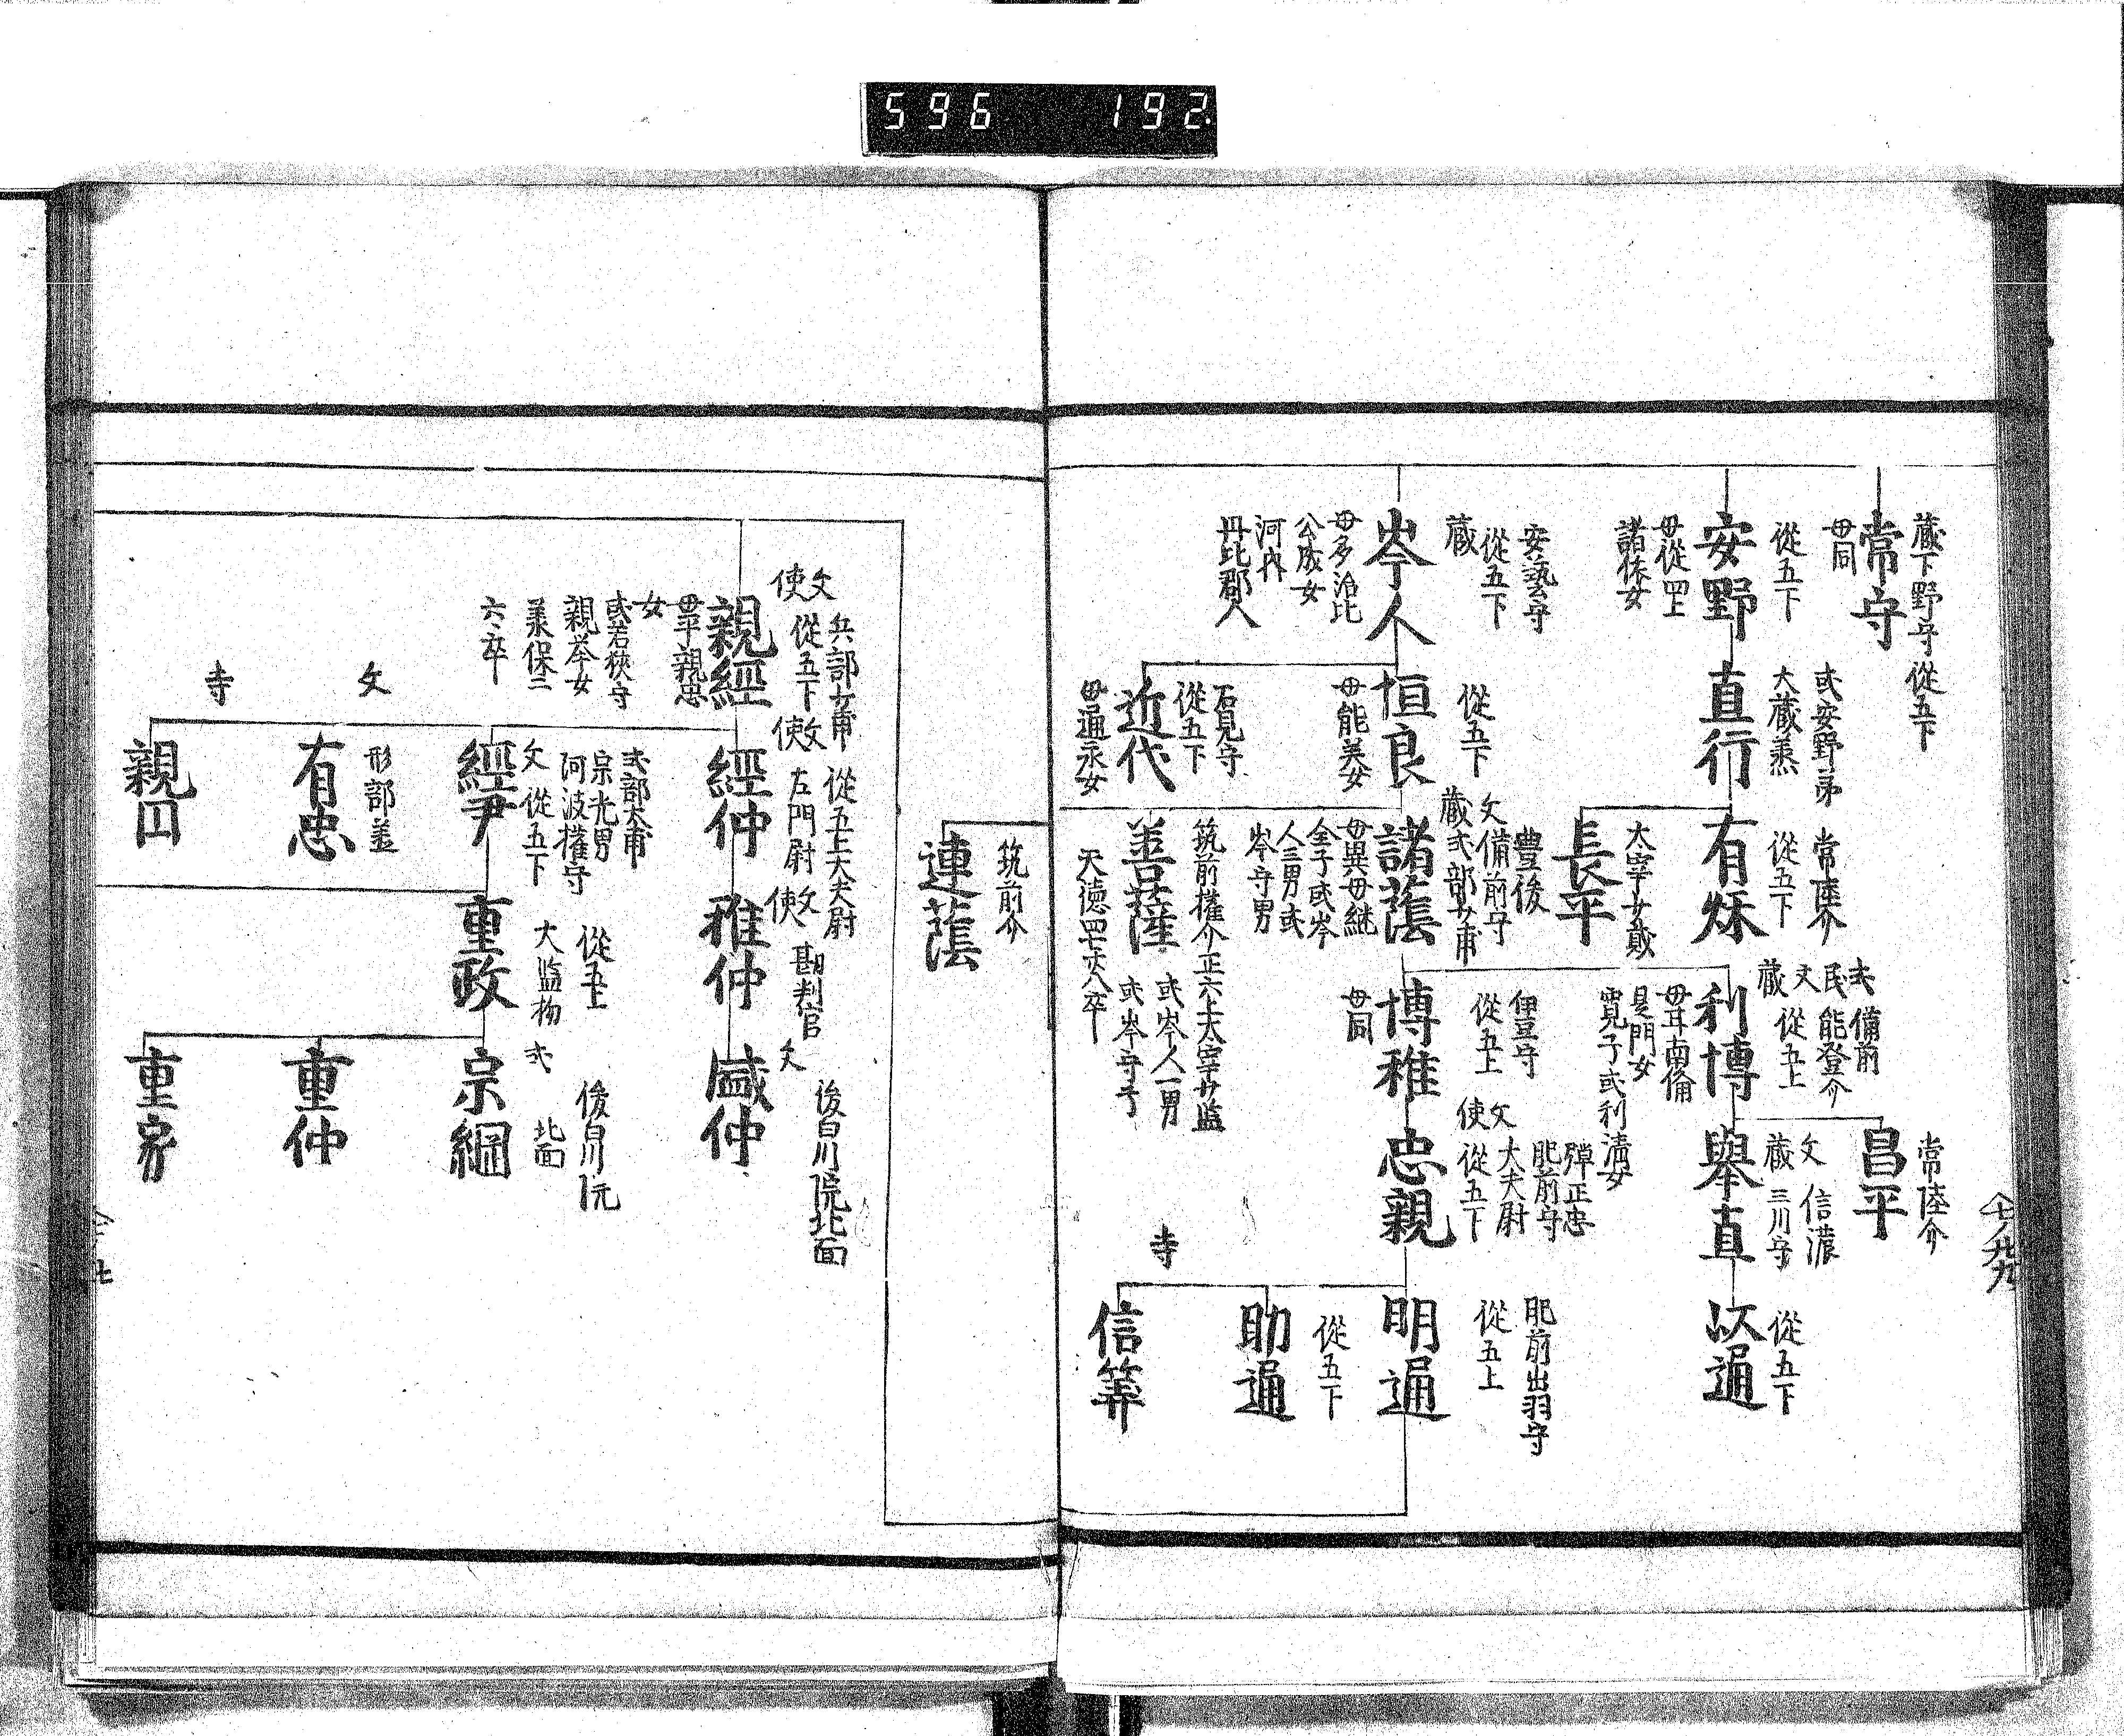 596 192
蔵下野守 從五下
常守
母同
從五下
安野
母從四上
諸依女
安藝守
從五下
蔵
岑人
母多治比
公成女
河内
丹比郡人
或安野弟
大蔵烝
直行
從五下
恒良
母能美女
石見守
從五下
近代
母通永女
常陸介
從五下
有秌
太宰少貳
長平
豊後
文 備前守
蔵 式部少甫
諸蔭
母異母継
全子或岑
人三男或
岑守男
筑前權介正六上太宰少監
善蔭
或岑人一男
或岑守子
天徳四七廿八卒
式 備前
民 能登介
文 從五上
蔵
利博
母耳南備
是門女
寛子或利淸女
伊豆守
從五上
博稚
母同
常陸介
昌平
文 信濃
蔵 三川守
擧直
彈正忠
肥前守
文 大夫尉
使 從五下
忠親
從五下
以通
肥前出羽守
從五上
明通
從五下
助通
寺
信筭
七ノ九九
筑前介
連蔭
文 兵部少甫
使 從五下
親經
母平親忠
女
或若狹守
親岑女
美保二
六、卒
文 從五上大夫尉
使 左門尉
經仲
式部大甫
宗光男
河波權守
文 從五下
經尹
形部丞
文
有忠
寺
親囗
文 勘判官
使
雅仲
從五上
大監物
重政
後白川院北面
文
盛仲
後白川院
北面
式
宗綱
重仲
重房